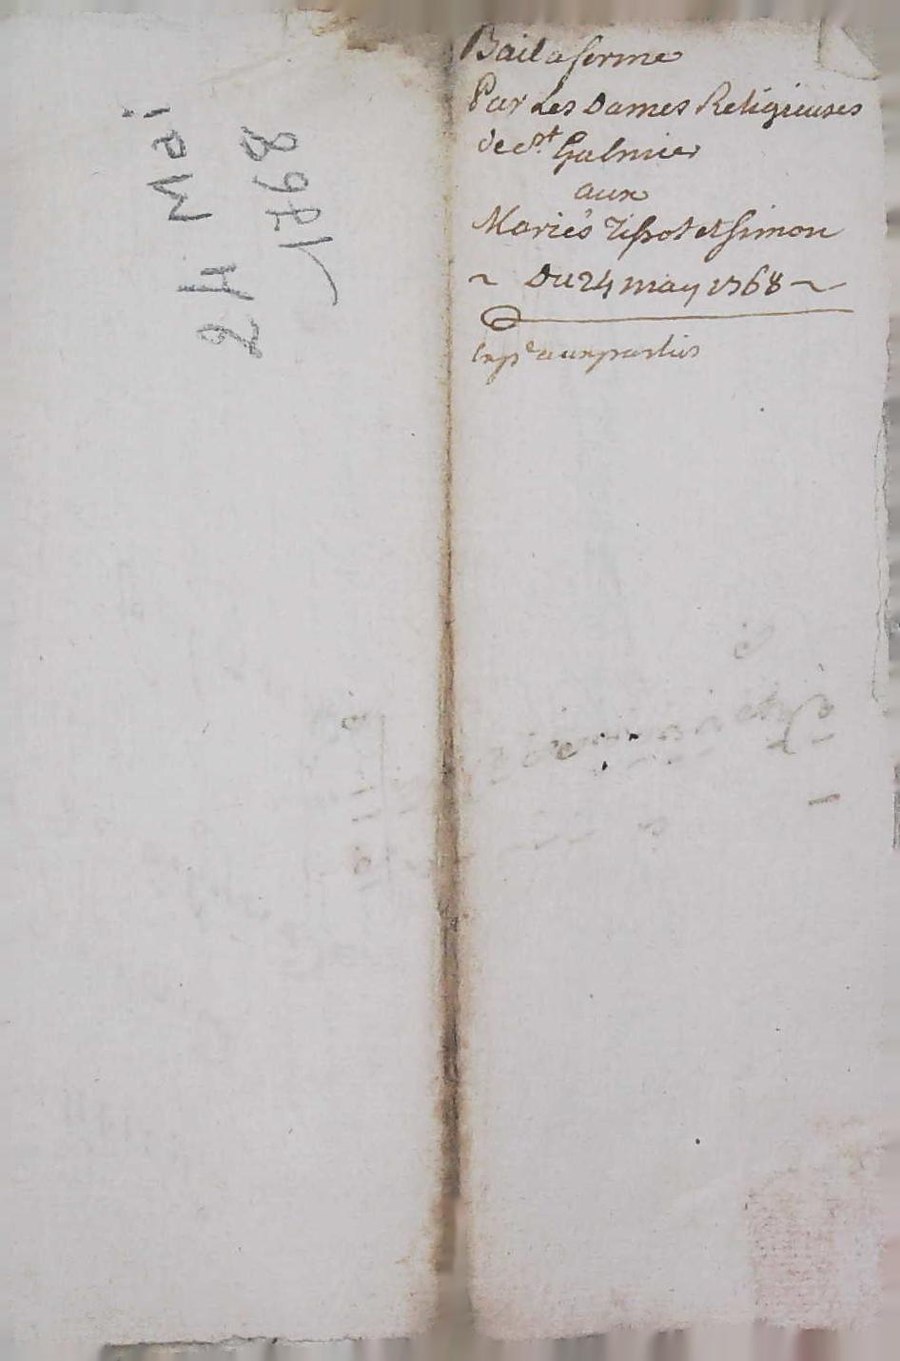 Bail a ferme
Par Les Dames Religieuses
de St Galmier
aux
Mariés Tissot et Simon
~ Du 24 may 1768 ~
Exp.e aux parties
24 Mai
1768